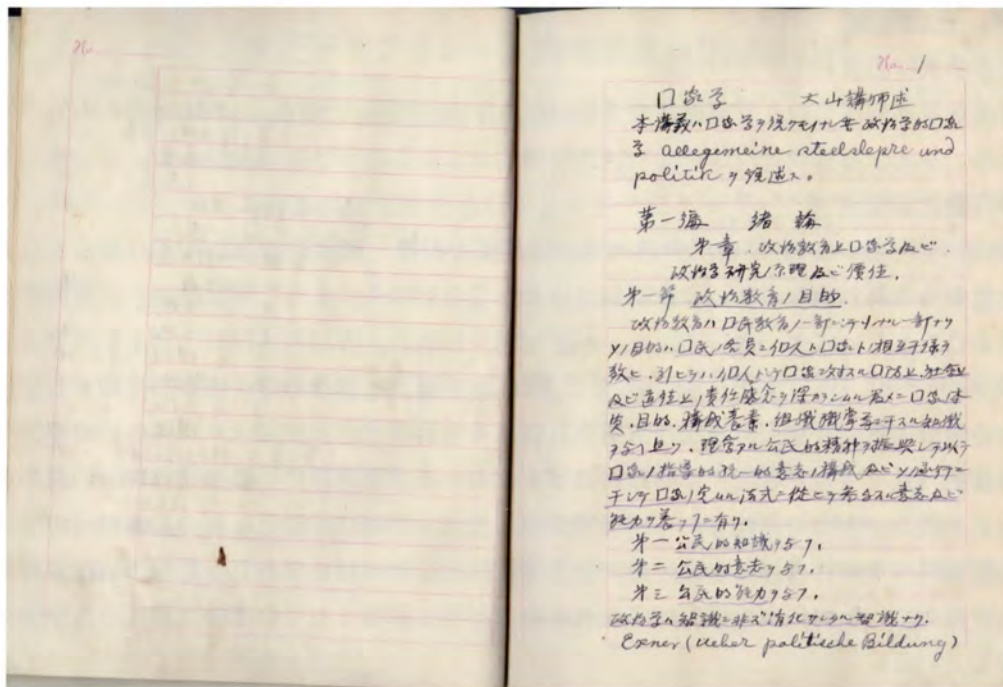 No.
No. 1
口家学 大山講師述
本講義ハ口家学ヲ説クモノナルモ政治学的口家
学 allegemeine steelslepre und
politik ヲ説述ス。
第一編 緒論
第一章、政治教育上口家学及ビ
政治学研究ノ合理及ビ價値。
第一節 政治教育ノ目的.
政治教育ハ口民教育ノ一部ニシテ
ソノ目的ハ口民ノ各員ニ個人ト口家トノ相互干係ヲ
教ヒ、個人トシテ口家ニ対スル口法上、社会上
及ビ道徳上ノ責任感念ヲ深カラシムル為メニ口家ノ本
質、目的、構成要素、組織職掌等ニ干スル知識
ヲ与ヘ且ツ、理会アル公民的精神ヲ振興シテ以テ
口家ノ指導的統一的意志ノ構成及ビソノ遂行ニ
干シテ口家ノ定ムル法式ニ從ヒテ参与スル意志及ビ
能力ヲ養フニ有リ。
第一 公民的知識ヲ与フ.
第二 公民的意志ヲ与フ.
第三 公民的能力ヲ与フ.
政治学ハ智識ニ非ズ消化サレタル智識ナリ.
Exner (Ueber politische Bildung)